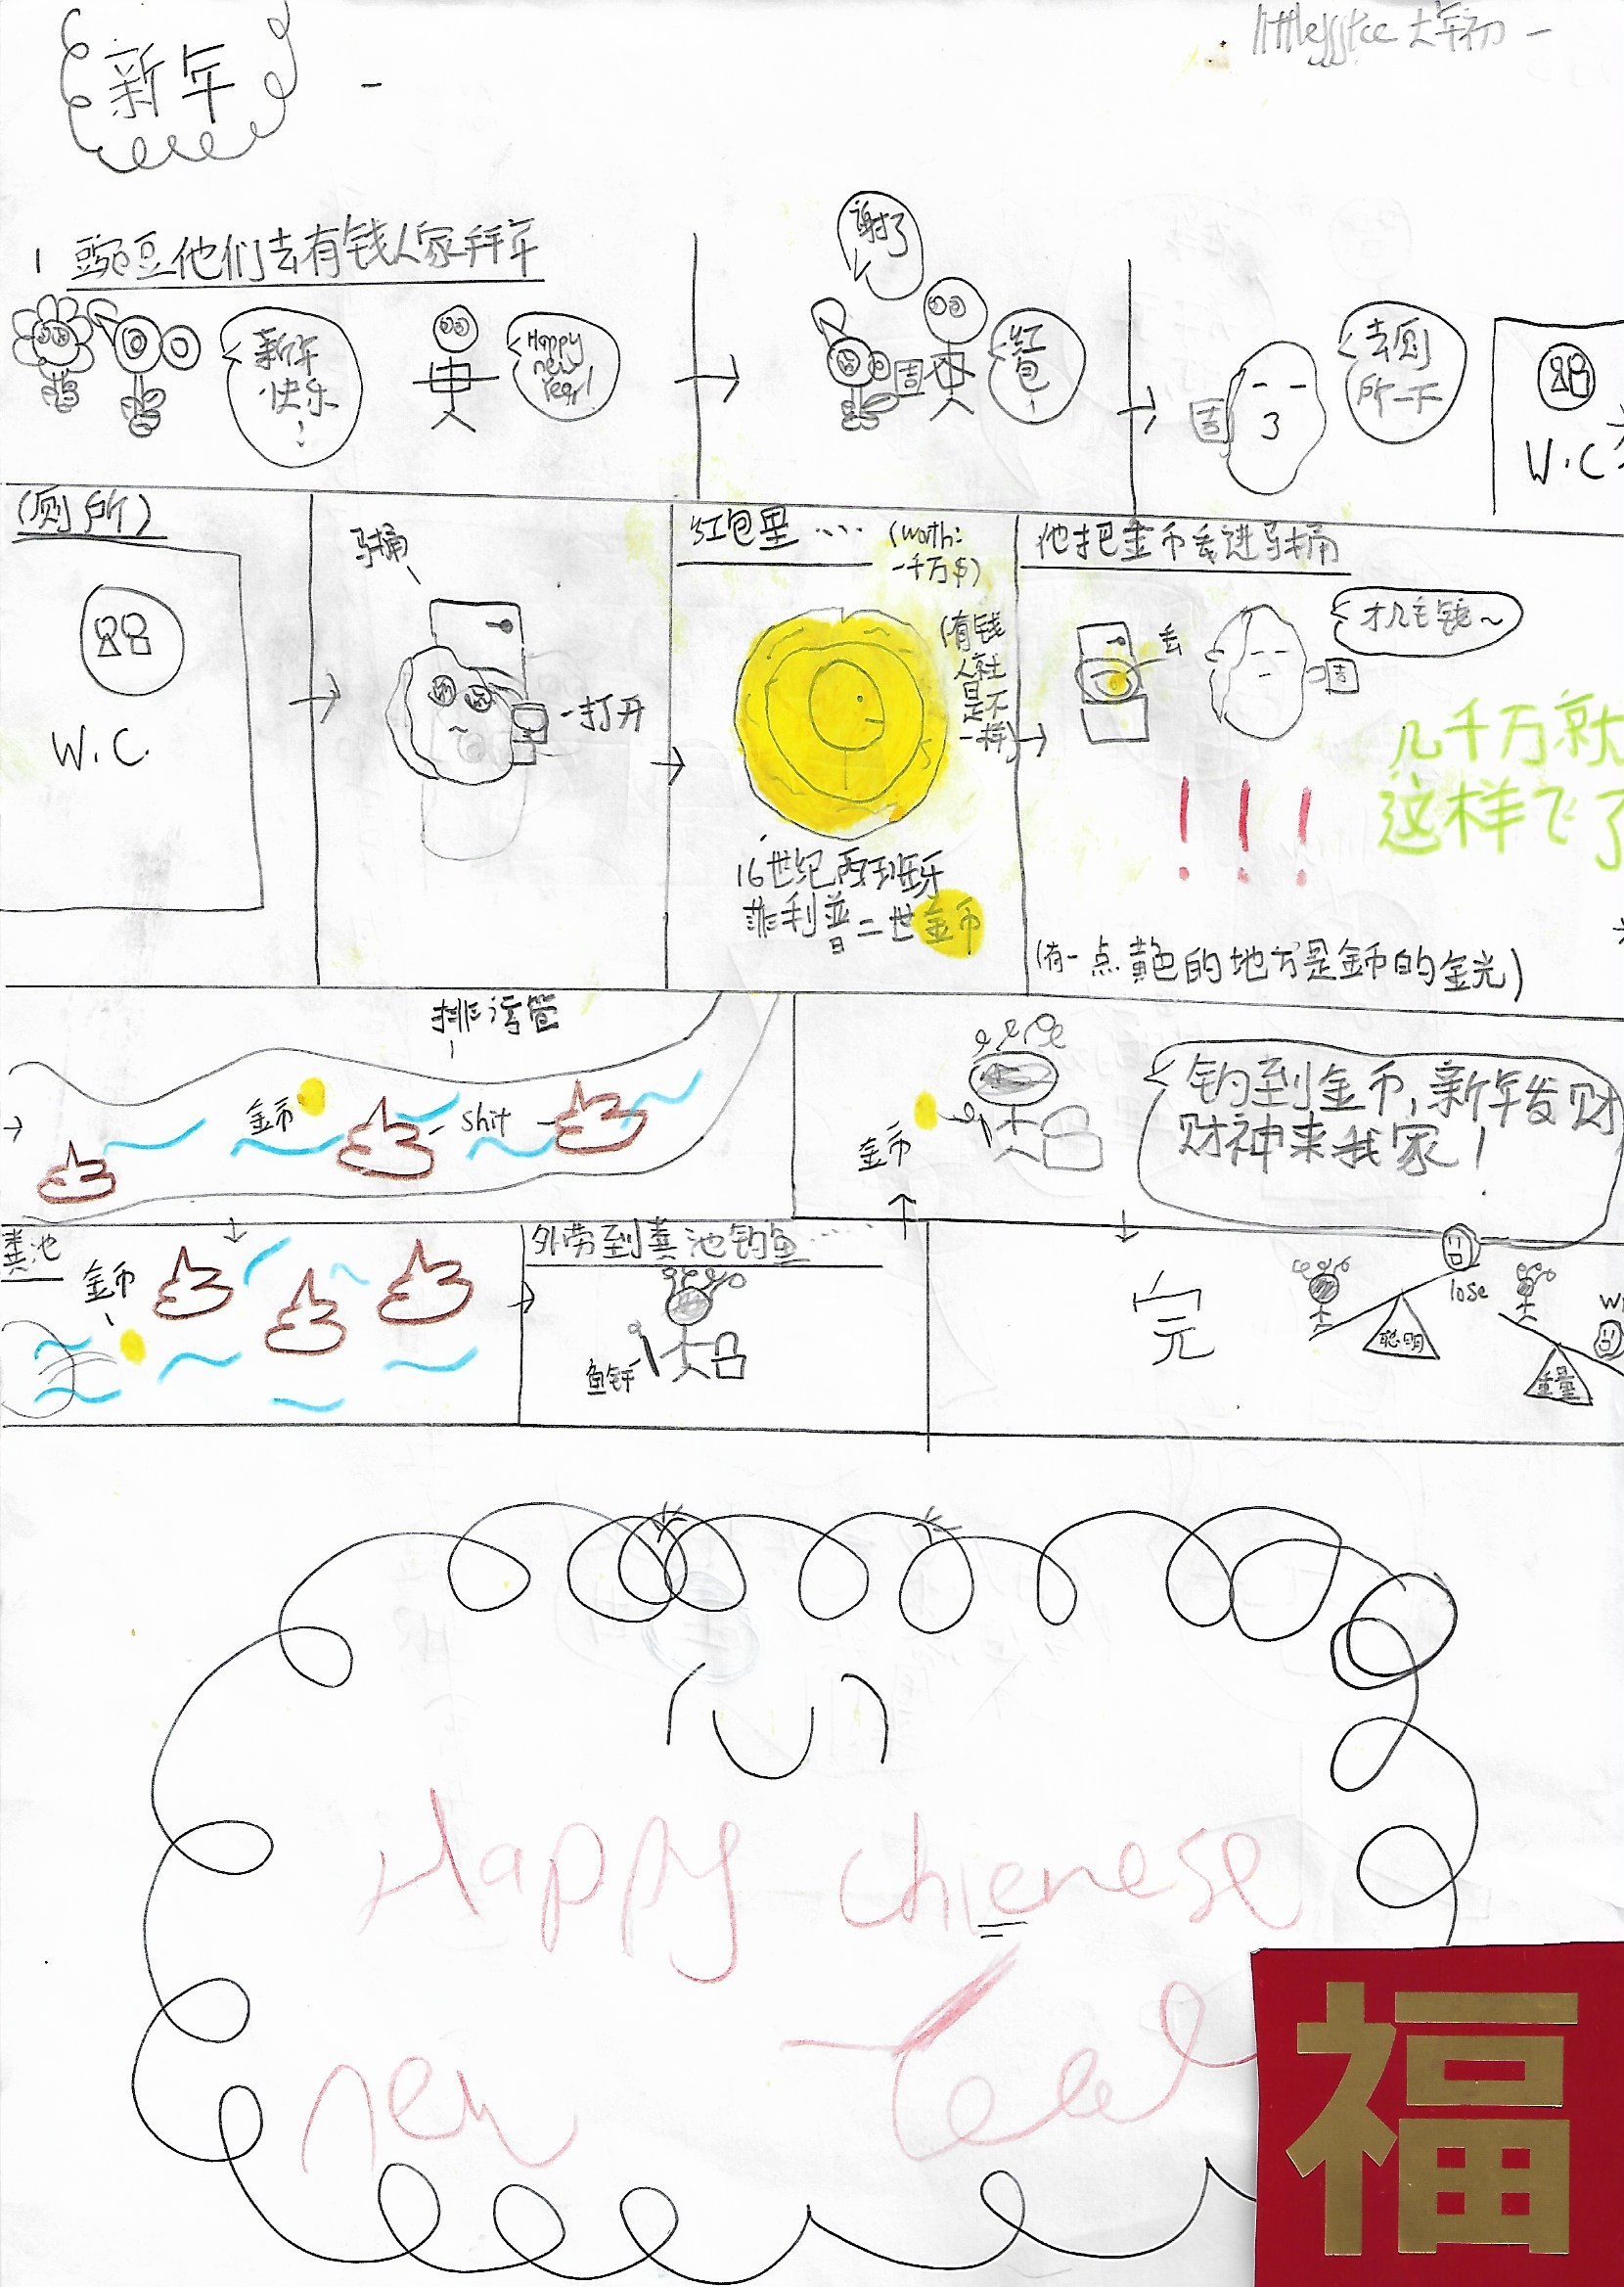 新年
大年初一
1 豌豆他们去有钱人家拜年
新年
快乐
!
Happy
new
Year!
谢了
红
包
!
周
去厕
所一下
周
W.C
(厕所)
W.C.
马桶
打开
红包里……
(worth:
一千万$)
(有钱
人就
是不
一样)
16世纪西班牙
菲利普二世金币
他把金币丢进马桶
丢
才几毛钱~
周
!!!
几千万就
这样飞了
(有一点黄色的地方是金币的金光)
排污管
金币
shit
金币
钓到金币,新年发财
财神来我家!
粪池
金币
外劳到粪池钓鱼……
鱼钎
完
聪明
lose
重量
Happy chienese
new Year
福